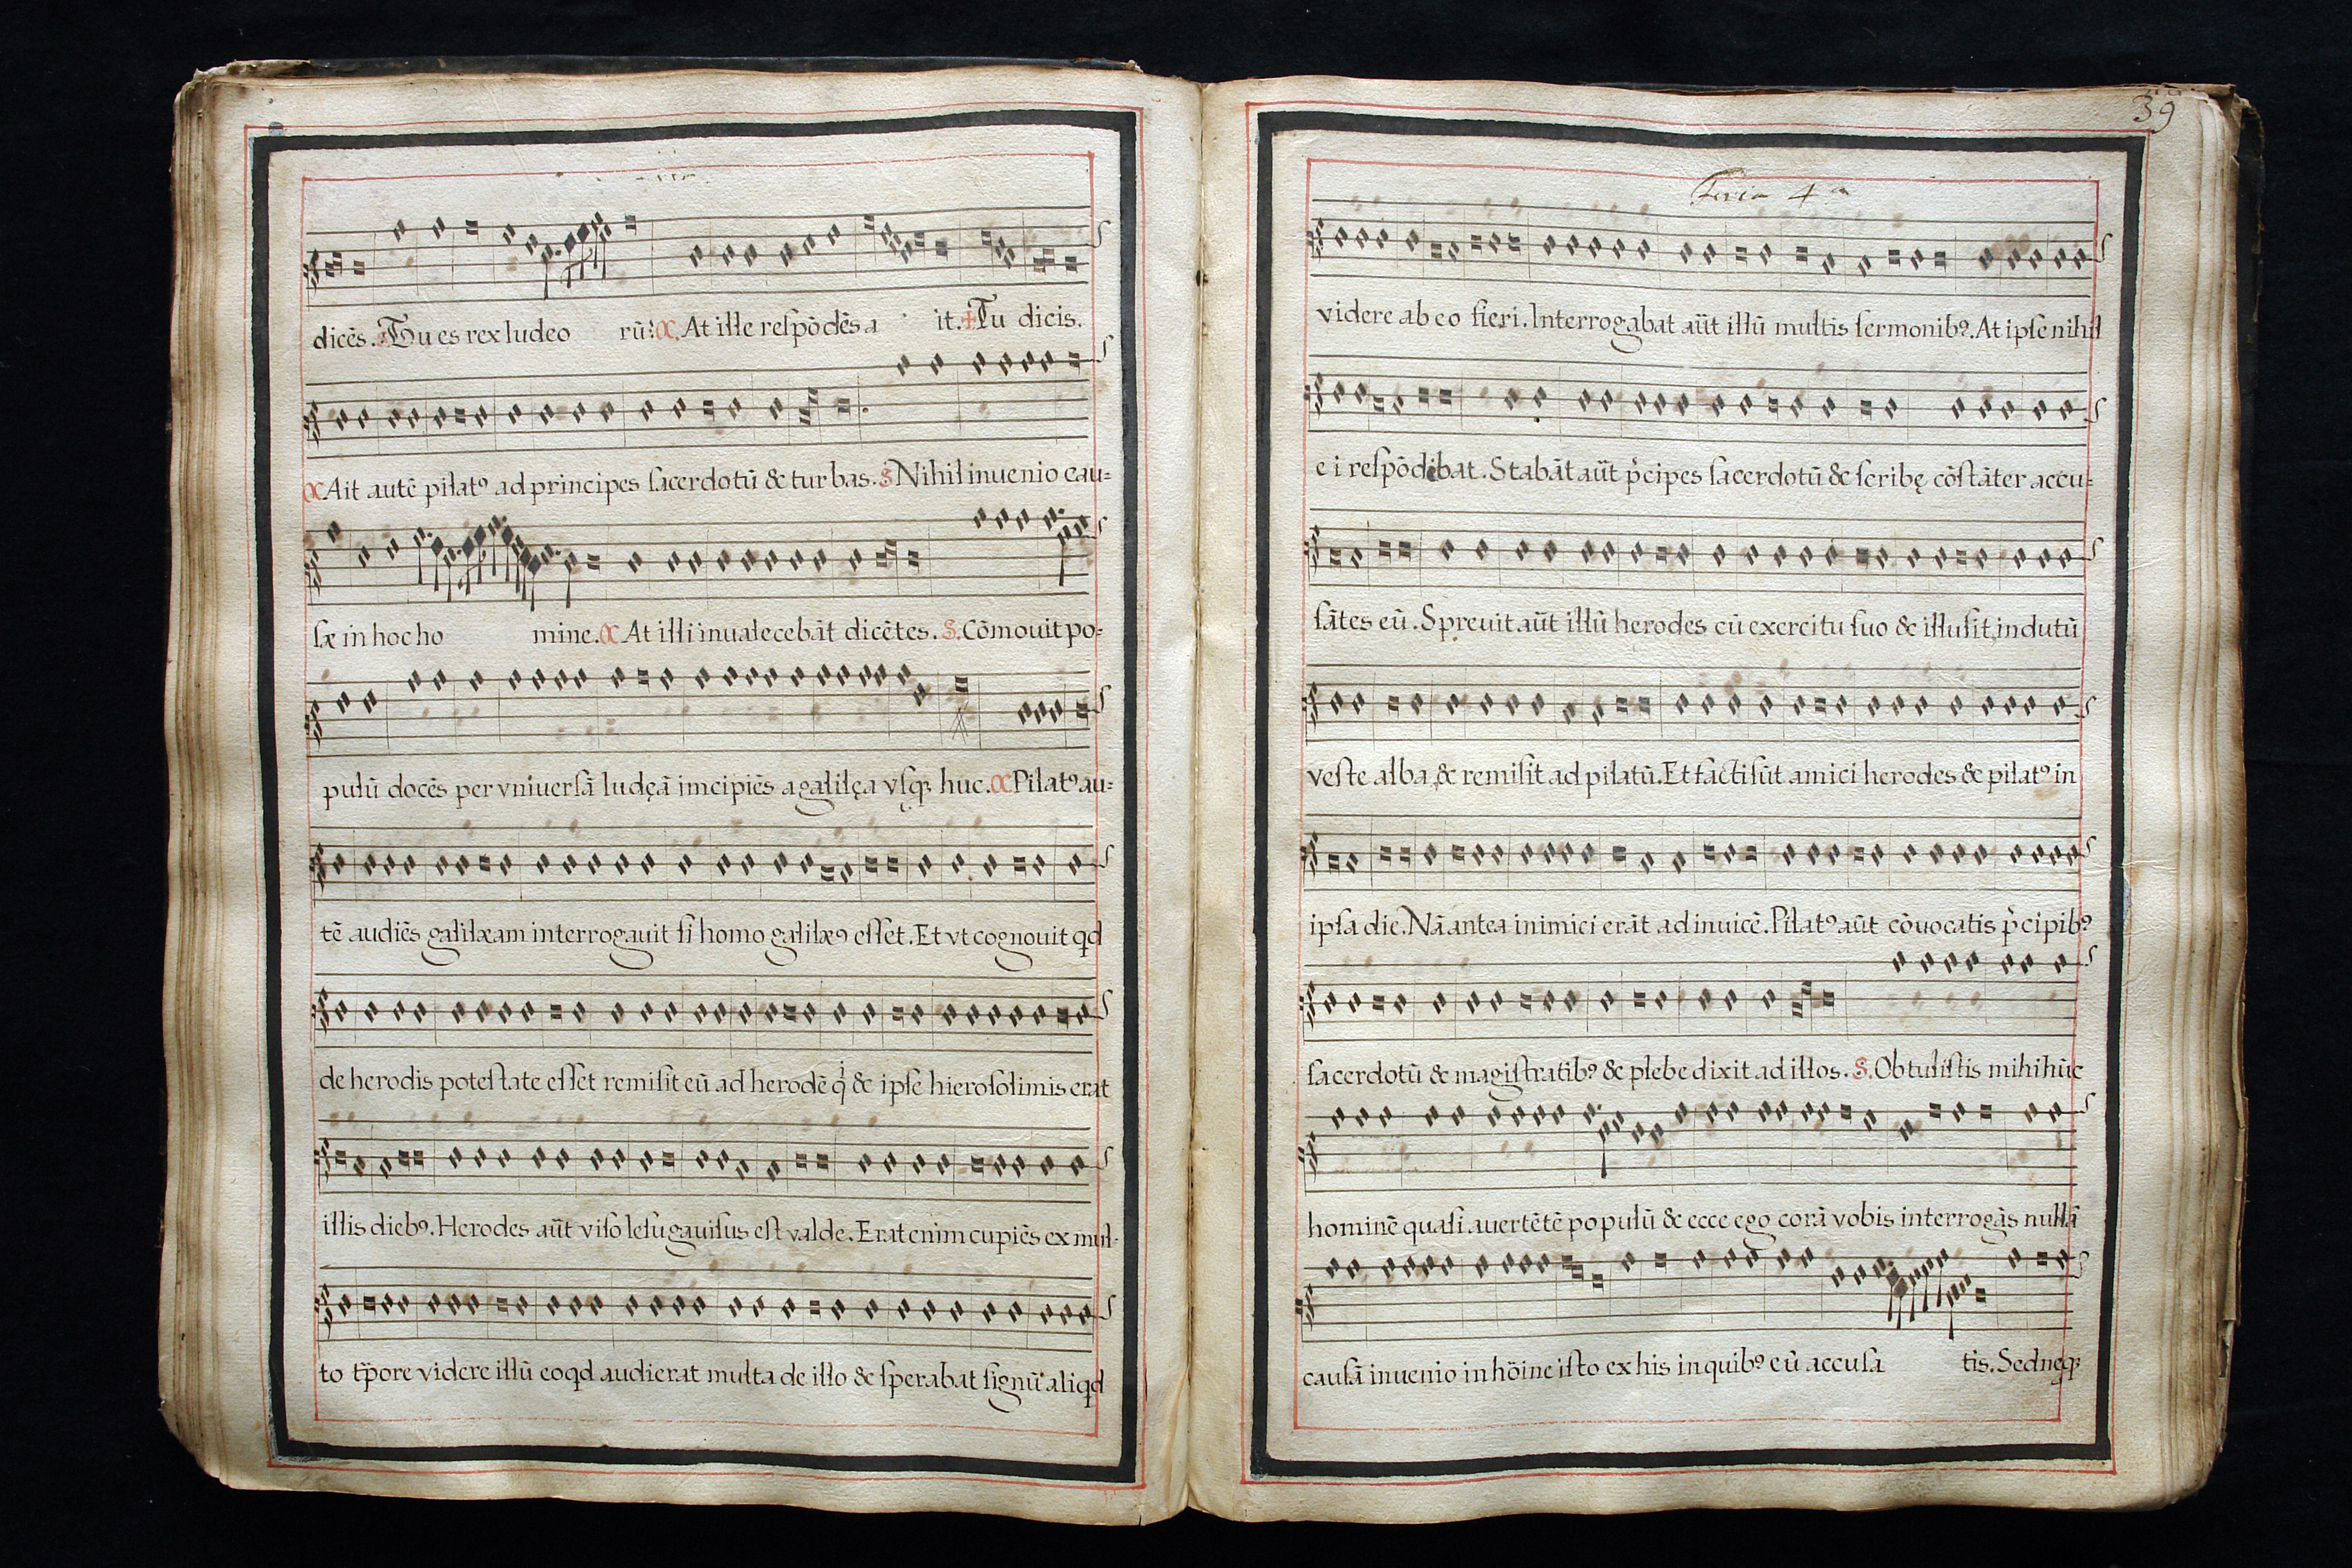 dicēs. Tu es rex Iudeo rū? C. At ille reſpōdēs a it. + Tu dicis.
C Ait autē pilatꝰ ad principes ſacerdotū & turbas. S Nihil inuenio cau=
ſæ in hoc ho mine. C At illi inualecebāt dicētes. S. Cōmouit po=
pulū docēs per vniuerſā Iudęā imcipiēs a galilęa vſqꝫ huc. C Pilatꝰ au=
tē audiēs galilæam interrogauit ſi homo galilæꝰ eſſet. Et vt cognouit qd
de herodis poteſtate eſſet remiſit eū ad herodē qͥ & ipſe hieroſolimis erat
illis diebꝰ. Herodes aūt viſo Ieſu gauiſus eſt valde. Erat enim cupiēs ex mul-
to tp̄ore videre illū eo qd audierat multa de illo & ſperabat ſignū aliqd
39
Feria 4ᵃ
videre ab eo fieri. Interrogabat aūt illū multis ſermonibꝰ. At ipſe nihil
ei reſpōdebat. Stabāt aūt p̍cipes ſacerdotū & ſcribę cōſtāter accu=
ſātes eū. Spreuit aūt illū herodes cū exercitu ſuo & illuſit, indutū
veſte alba, & remiſit ad pilatū. Et facti ſūt amici herodes & pilatꝰ in
ipſa die. Nā antea inimici erāt ad inuicē. Pilatꝰ aūt cōuocatis p̍cipibꝰ
ſacerdotū & magiſtratibꝰ & plebe dixit ad illos. S. Obtuliſtis mihi hūc
hominē quaſi auertētē populū & ecce ego corā vobis interrogās nullā
cauſā inuenio in hōine iſto ex his in quibꝰ eū accuſa tis. Sed neqꝫ